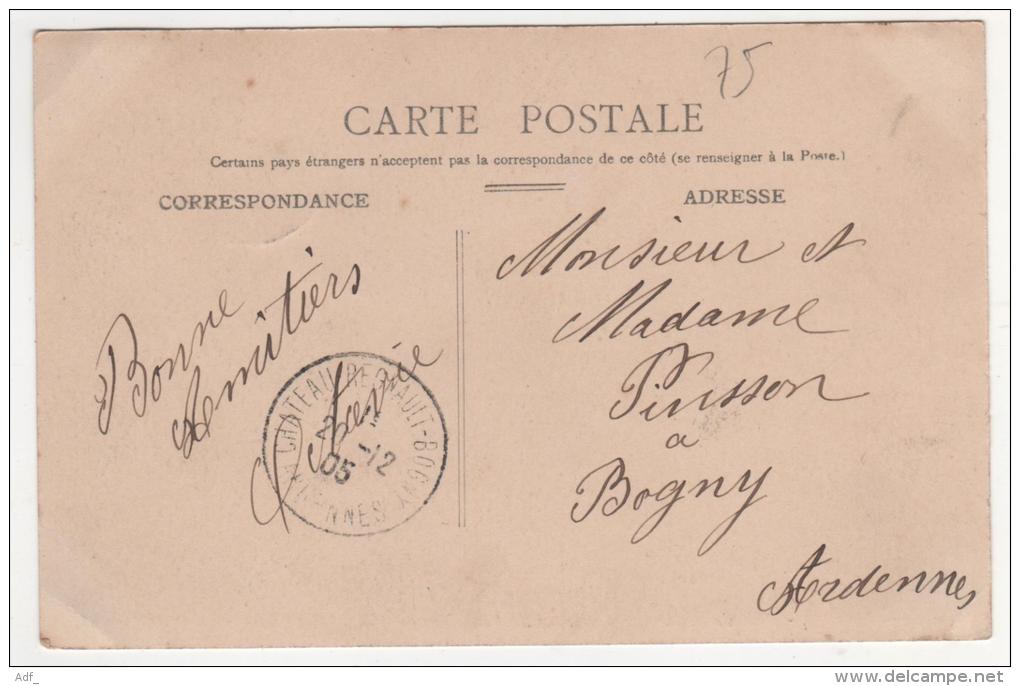 75
CARTE POSTALE
Certains pays étrangers n'acceptent pas la correspondance de ce côté (se renseigner à la Poste.)
CORRESPONDANCE
Bonne
Amitiers
CHATEAU-REGNAULT-BOGNY
-12
05
ARDENNES
ADRESSE
Monsieur et
Madame
Pinsson
a
Bogny
Ardennes
Adf_
www.delcampe.net